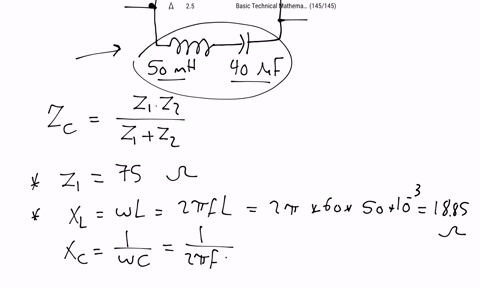 Δ 2.5 Basic Technical Mathema... (145/145)
50 mH 40 μF
Zc = Z1 · Z2 / Z1 + Z2
* Z1 = 75 Ω
* XL = ωL = 2πfL = 2π * 60 * 50 * 10^-3 = 18.85 Ω
Xc = 1 / ωC = 1 / 2πf.